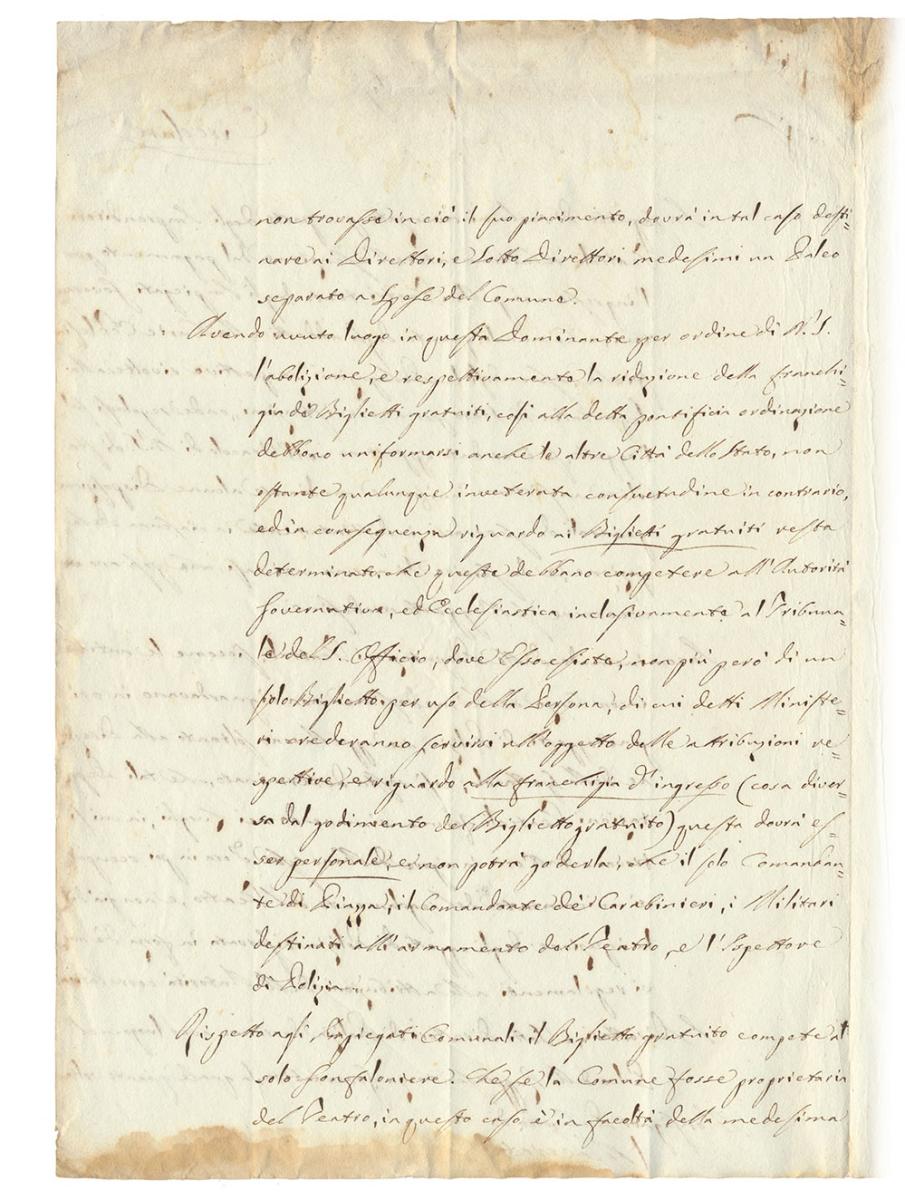 non trovasse in ciò il suo piacimento, dovrà in tal caso desti=
nare ai Direttori, e Sotto Direttori medesimi un Palco
separato a spese del Comune.
Avendo avuto luogo in questa Dominante per ordine di N.S.
l'abolizione, e respettivamente la riduzione della franchi=
gia de' Biglietti gratuiti, così alla detta pontificia ordinazione
debbono uniformarsi anche le altre Città dello Stato, non
ostante qualunque inveterata consuetudine in contrario,
ed in conseguenza riguardo ai Biglietti gratuiti resta
determinato, che queste debbano competere all'Autorità
Governativa, ed Ecclesiastica inclusivamente al Tribuna=
le del S. Officio, dove Esso esiste, non più però di un
solo Biglietto per uso della Persona, di cui detti Ministe=
ri crederanno servirsi all'oggetto delle attribuzioni re=
spettive, e riguardo alla franchigia d'ingresso (cosa diver=
sa dal godimento del Biglietto gratuito) questa dovrà es=
ser personale, e non potrà goderla, che il solo Comandan=
te di Piazza, il Comandante de' Carabinieri, i Militari
destinati all'armamento del Teatro, e l'Ispettore
di Polizia.
Rispetto agl'Impiegati Comunali il Biglietto gratuito compete al
solo Gonfaloniere. Che se la Comune fosse proprietaria
del Teatro, in questo caso è in facoltà della medesima